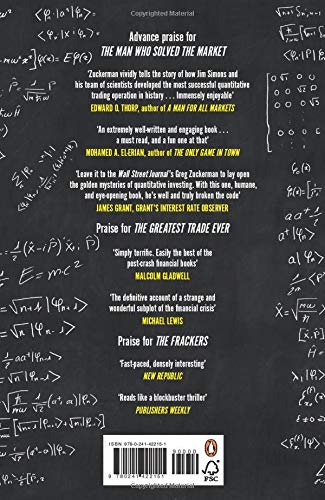 Advance praise for
THE MAN WHO SOLVED THE MARKET
'Zuckerman vividly tells the story of how Jim Simons and
his team of scientists developed the most successful quantitative
trading operation in history . . . Immensely enjoyable'
EDWARD O. THORP, author of A MAN FOR ALL MARKETS
'An extremely well-written and engaging book . . . a
must read, and a fun one at that'
MOHAMED A. EL-ERIAN, author of THE ONLY GAME IN TOWN
'Leave it to the Wall Street Journal's Greg Zuckerman to lay open
the golden mysteries of quantitative investing. With this one, humane,
and eye-opening book, he's well and truly broken the code'
JAMES GRANT, GRANT'S INTEREST RATE OBSERVER
Praise for THE GREATEST TRADE EVER
'Simply terrific. Easily the best of the
post-crash financial books'
MALCOLM GLADWELL
E = mc²
'The definitive account of a strange and
wonderful subplot of the financial crisis'
MICHAEL LEWIS
Praise for THE FRACKERS
'Fast-paced, densely interesting'
NEW REPUBLIC
'Reads like a blockbuster thriller'
PUBLISHERS WEEKLY
ISBN 978-0-241-42215-1
90000
9 780241 422151
FSC